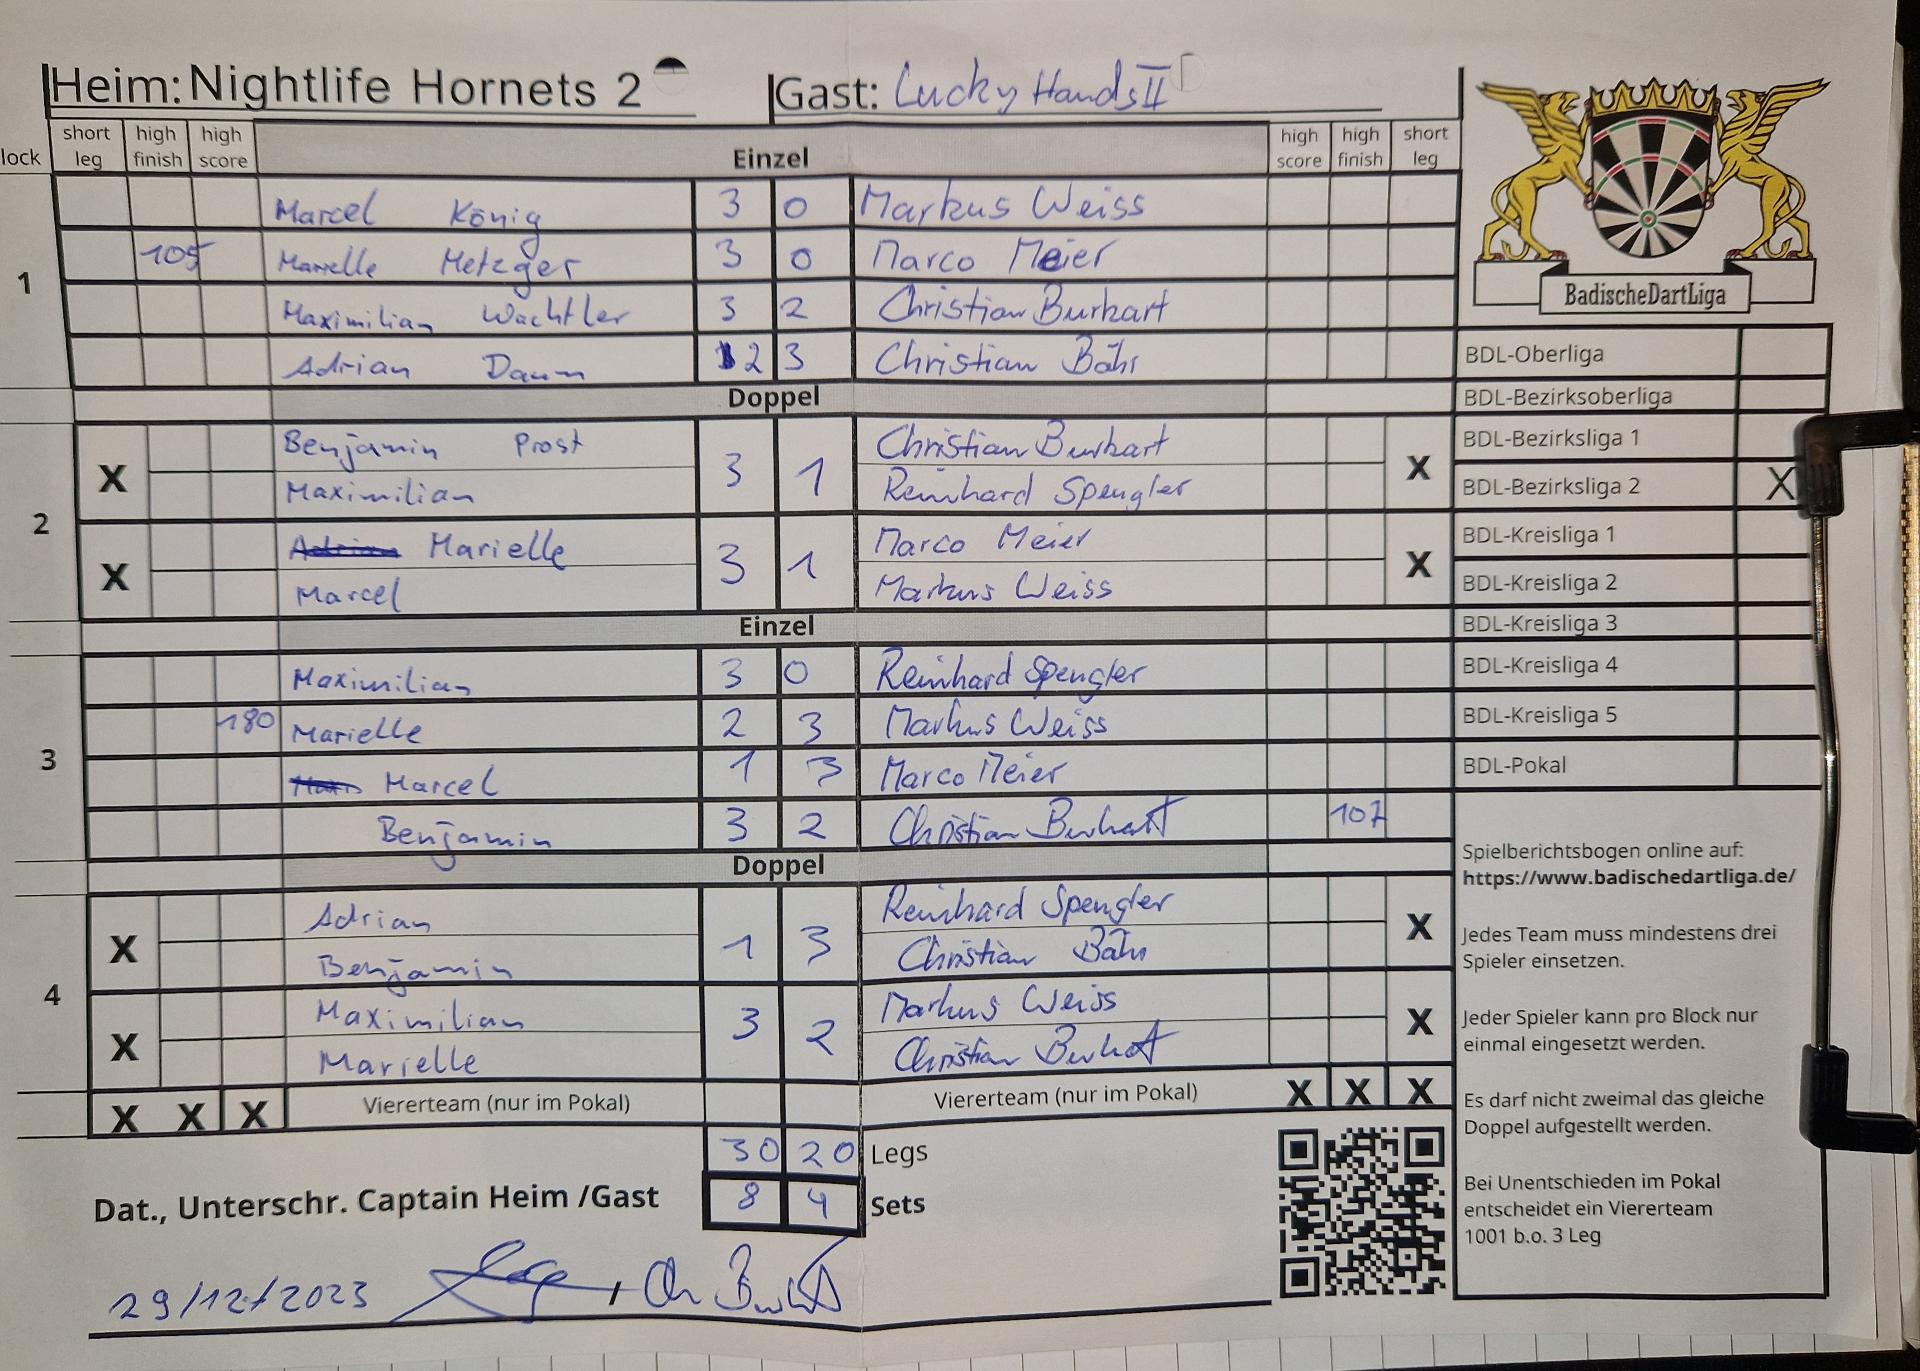 Heim: Nightlife Hornets 2 Gast: Lucky Hands II
lock short leg high finish high score Einzel high score high finish short leg
1
Marcel König 3 0 Markus Weiss
105 Marielle Metzger 3 0 Marco Meier
Maximilian Wachtler 3 2 Christian Burkart
Adrian Daum 2 3 Christian Bähr
Doppel
2
X Benjamin Prost 3 1 Christian Burkart X
Maximilian Reinhard Spengler
X Marielle 3 1 Marco Meier X
Marcel Markus Weiss
Einzel
3
Maximilian 3 0 Reinhard Spengler
180 Marielle 2 3 Markus Weiss
Marcel 1 3 Marco Meier
Benjamin 3 2 Christian Burkart 107
Doppel
4
X Adrian 1 3 Reinhard Spengler X
Benjamin Christian Bähr
X Maximilian 3 2 Markus Weiss X
Marielle Christian Burkart
X X X Viererteam (nur im Pokal) Viererteam (nur im Pokal) X X X
30 20 Legs
8 4 Sets
Dat., Unterschr. Captain Heim /Gast
29/12/2023
BadischeDartLiga
BDL-Oberliga
BDL-Bezirksoberliga
BDL-Bezirksliga 1
BDL-Bezirksliga 2 X
BDL-Kreisliga 1
BDL-Kreisliga 2
BDL-Kreisliga 3
BDL-Kreisliga 4
BDL-Kreisliga 5
BDL-Pokal
Spielberichtsbogen online auf:
https://www.badischedartliga.de/
Jedes Team muss mindestens drei
Spieler einsetzen.
Jeder Spieler kann pro Block nur
einmal eingesetzt werden.
Es darf nicht zweimal das gleiche
Doppel aufgestellt werden.
Bei Unentschieden im Pokal
entscheidet ein Viererteam
1001 b.o. 3 Leg